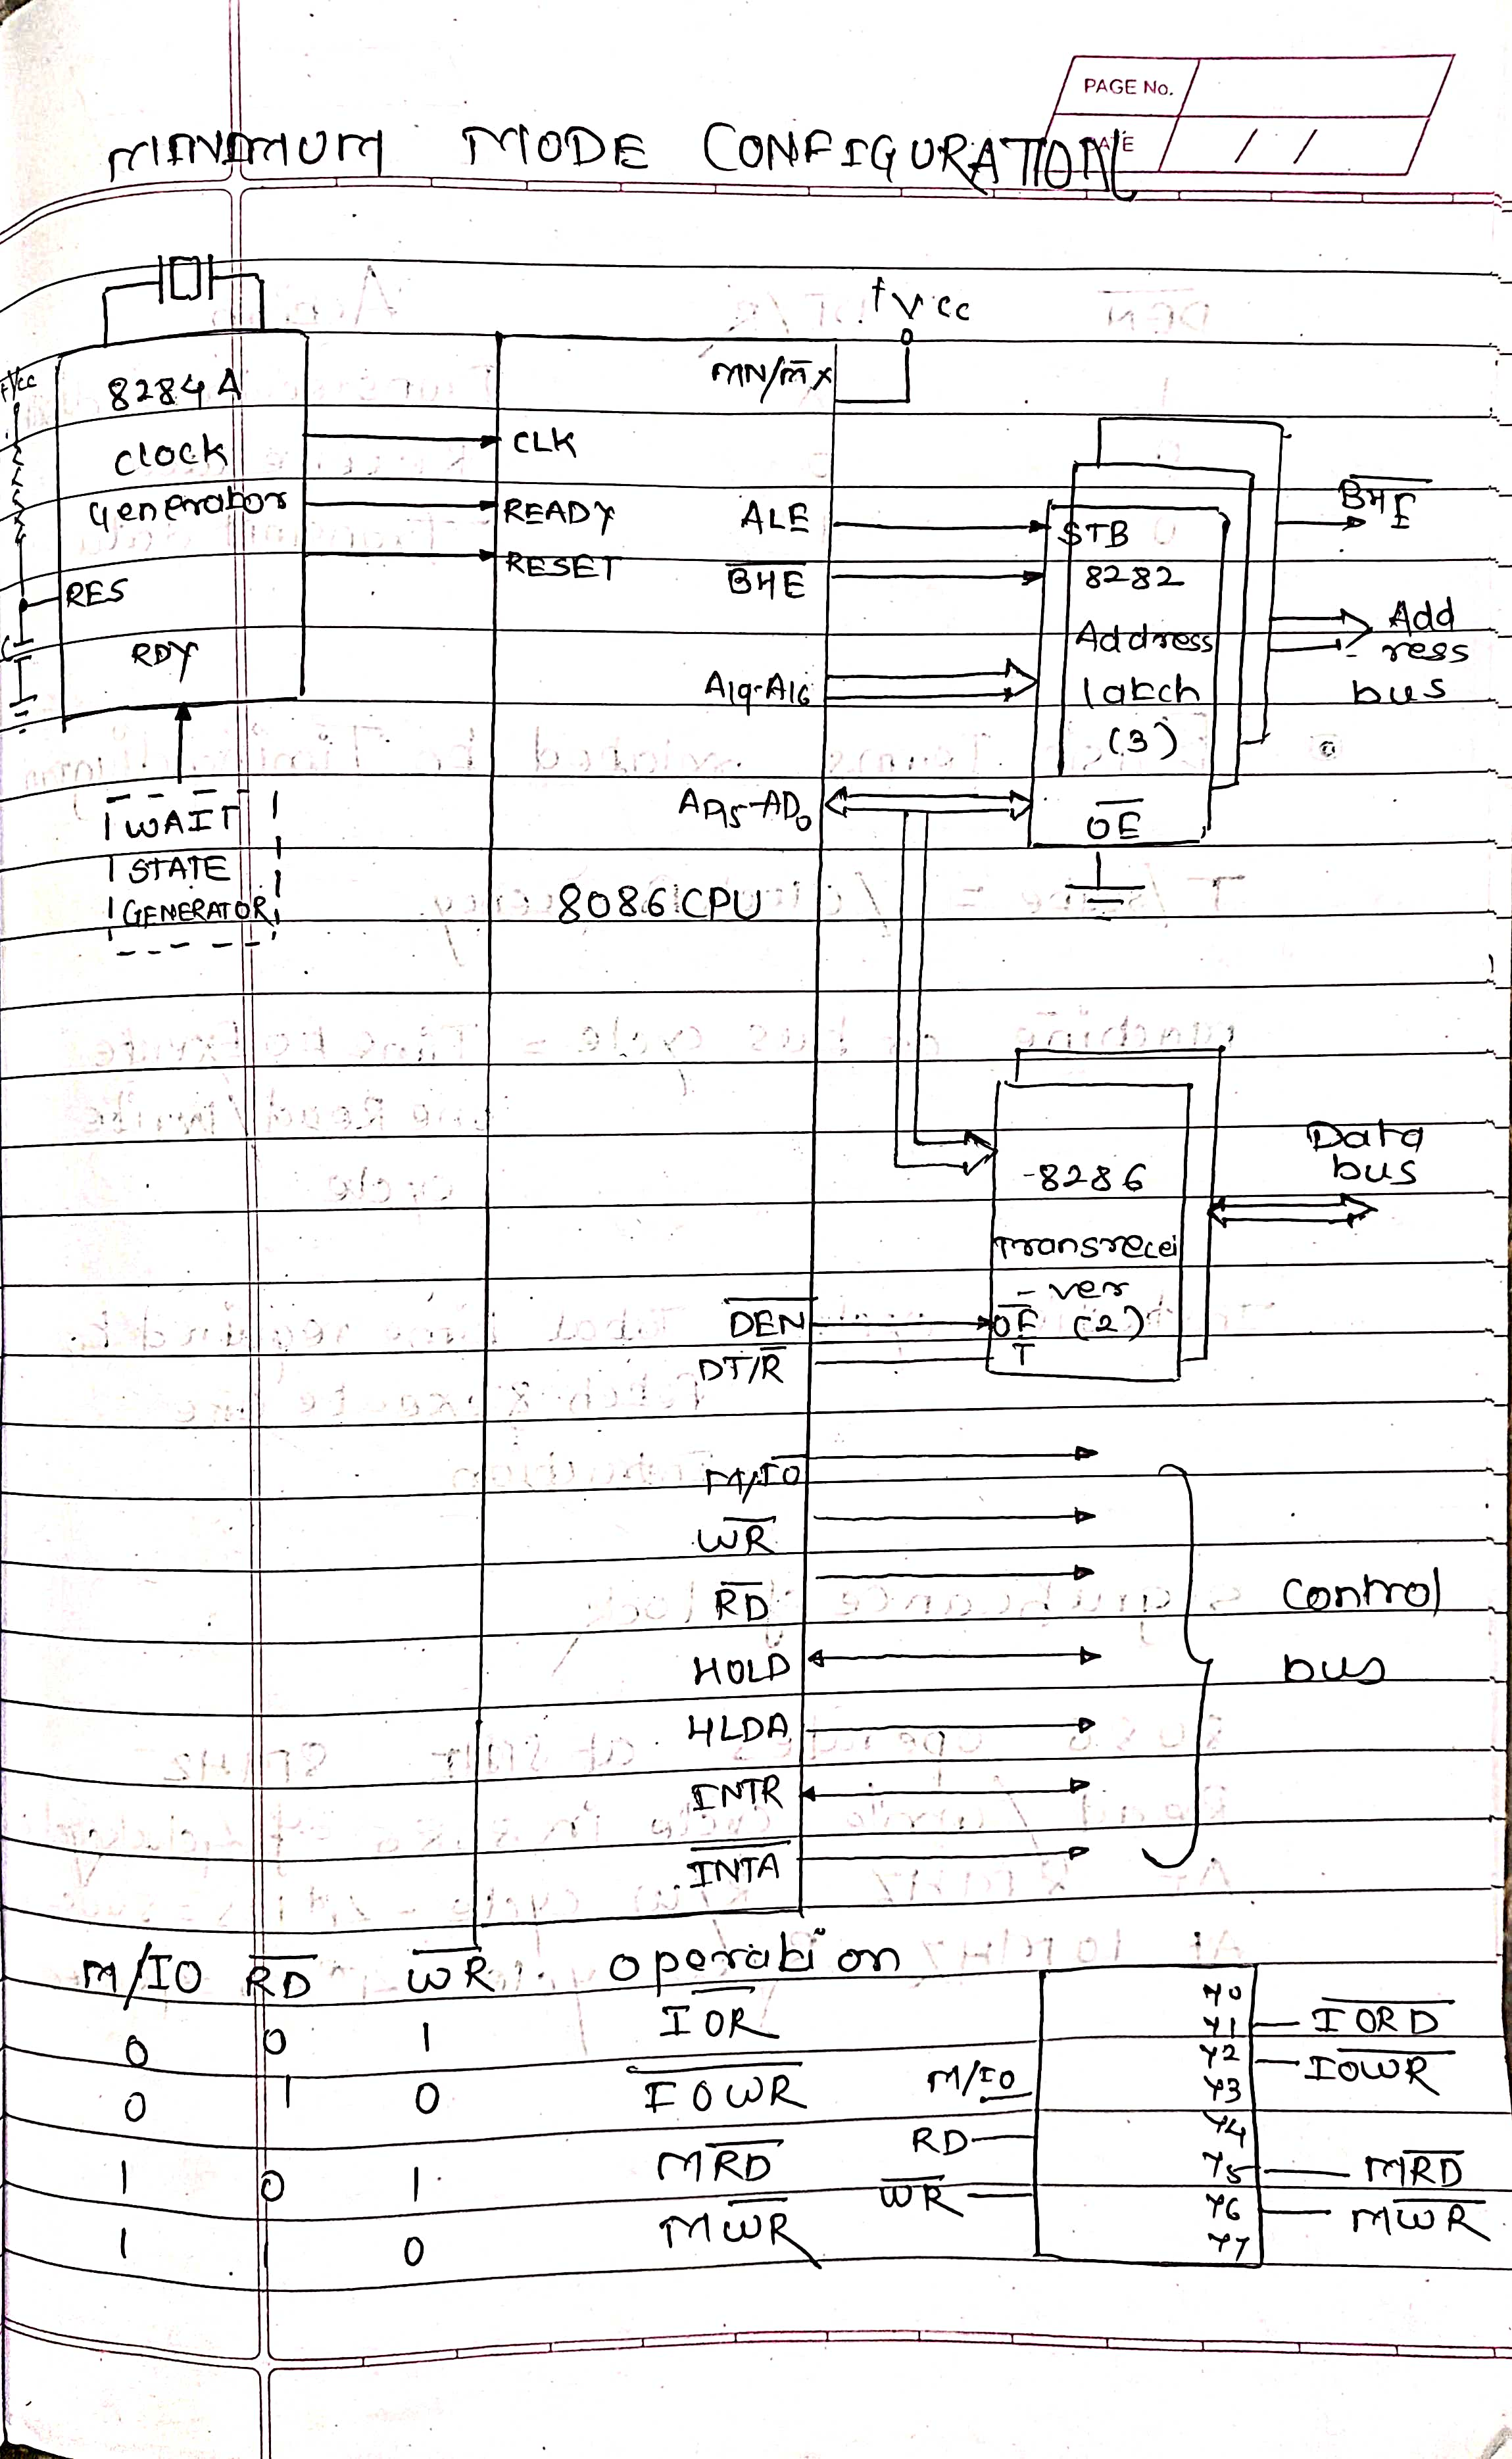 PAGE No.
DATE / /
MINIMUM MODE CONFIGURATION
+Vcc
+Vcc
8284A
clock
Generator
RES
RDY
WAIT
STATE
GENERATOR
MN/M̅X̅
CLK
READY
RESET
ALE
B̅H̅E̅
A19-A16
AD15-AD0
8086 CPU
STB
8282
Address
latch
(3)
O̅E̅
B̅H̅E̅
Add
ress
bus
8286
Transrecei
-ver
O̅E̅ (2)
T
Data
bus
D̅E̅N̅
DT/R̅
M/I̅O̅
W̅R̅
R̅D̅
HOLD
HLDA
INTR
I̅N̅T̅A̅
control
bus
M/IO R̅D̅ W̅R̅ operation
0 0 1 I̅O̅R̅
0 1 0 I̅O̅W̅R̅
1 0 1 MR̅D̅
1 1 0 MW̅R̅
M/IO
RD
W̅R̅
Y0
Y1 I̅O̅R̅D̅
Y2 IO̅W̅R̅
Y3
Y4
Y5 MR̅D̅
Y6 MW̅R̅
Y7